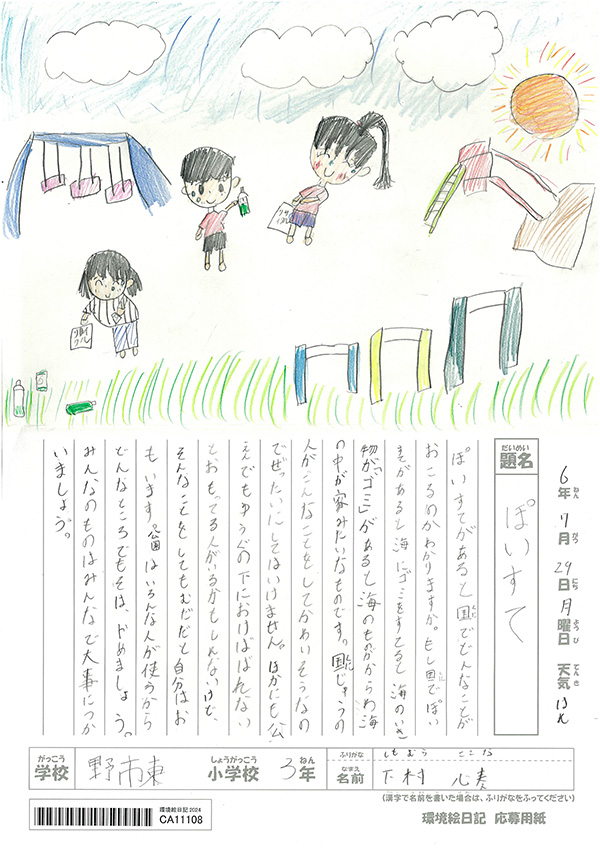 リサ
イクル
リサイ
クル
6年7月29日月曜日 天気 はれ
ねん がつ にち ようび てんき
だいめい
題名 ぽいすて
ぽいすてがあると国でどんなことが
おこるのかわかりますか。もし国でぽい
すてがあると海にゴミをすてると海のいき
物が、「ゴミ」があると海のものがからわ海
の中が家みたいなものです。国じゅうの
人がこんなことをしてかわいそうなの
でぜったいにしてはいけません。ほかにも公
えでもゆうぐの下におけばばれない
とおもってる人がいるかもしんないけど、
そんなことをしてもむだだと自分はお
もいます。公園はいろんな人が使うから
どんなところでも めましょう。
みんなのものはみんなで大事につか
いましょう。
がっこう しょうがっこう ねん
学校 野市東 小学校 3年
ふりがな しもむら ここな
なまえ
名前 下村 心
(漢字で名前を書いた場合は、ふりがなをふってください)
環境絵日記2024
CA11108
環境絵日記 応募用紙